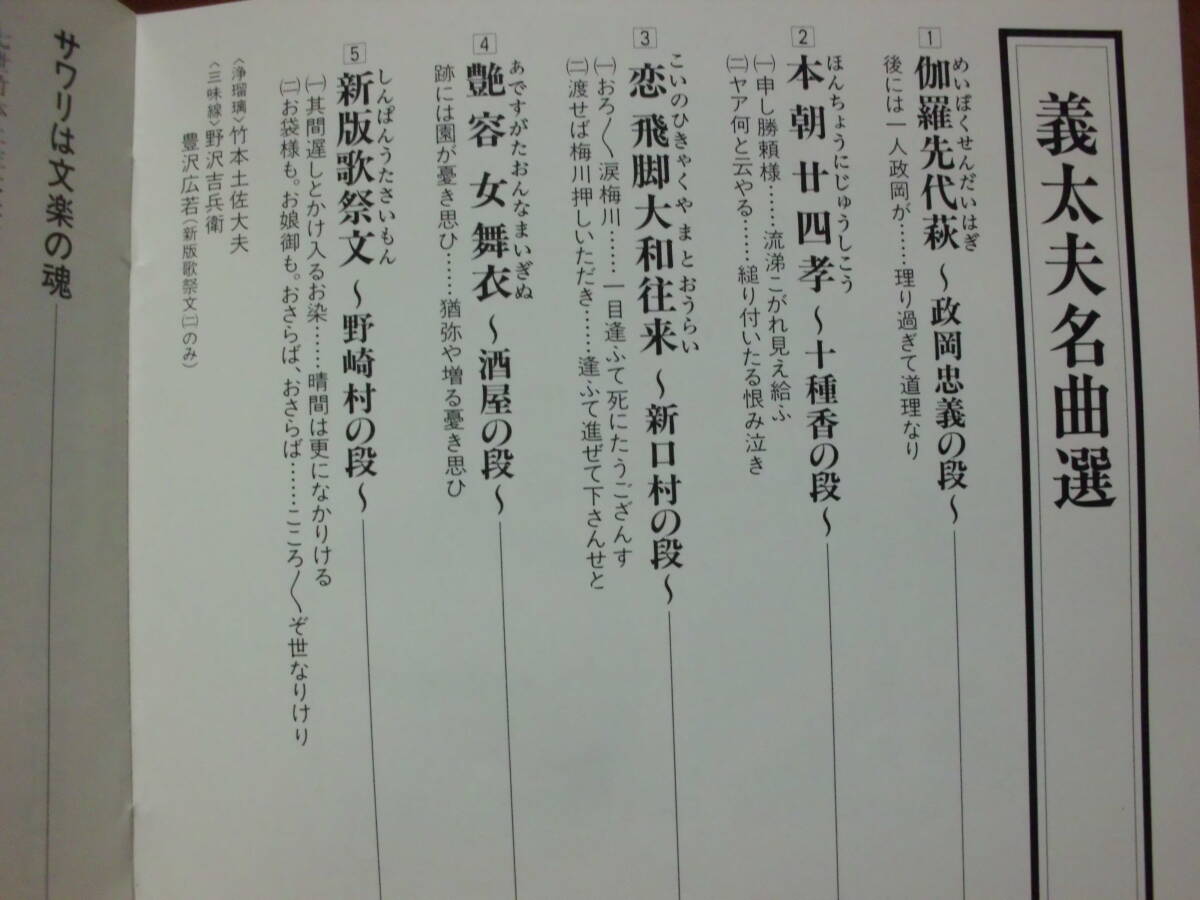 義太夫名曲選
1 伽羅先代萩 ～政岡忠義の段～
めいぼくせんだいはぎ
後には一人政岡が……理り過ぎて道理なり
2 本朝廿四孝 ～十種香の段～
ほんちょうにじゅうしこう
㈠申し勝頼様……流涕こがれ見え給ふ
㈡ヤア何と云やる……縋り付いたる恨み泣き
3 恋飛脚大和往来 ～新口村の段～
こいのひきゃくやまとおうらい
㈠おろ〱涙梅川……一目逢ふて死にたうござんす
㈡渡せば梅川押しいただき……逢ふて進ぜて下さんせと
4 艶容女舞衣 ～酒屋の段～
あですがたおんなまいぎぬ
跡には園が憂き思ひ……猶弥や増る憂き思ひ
5 新版歌祭文 ～野崎村の段～
しんぱんうたさいもん
㈠其間遅しとかけ入るお染……晴間は更になかりける
㈡お袋様も。お娘御も。おさらば、おさらば………こころ〱ぞ世なりけり
〈浄瑠璃〉竹本土佐大夫
〈三味線〉野沢吉兵衛
豊沢広若（新版歌祭文㈡のみ）
サワリは文楽の魂